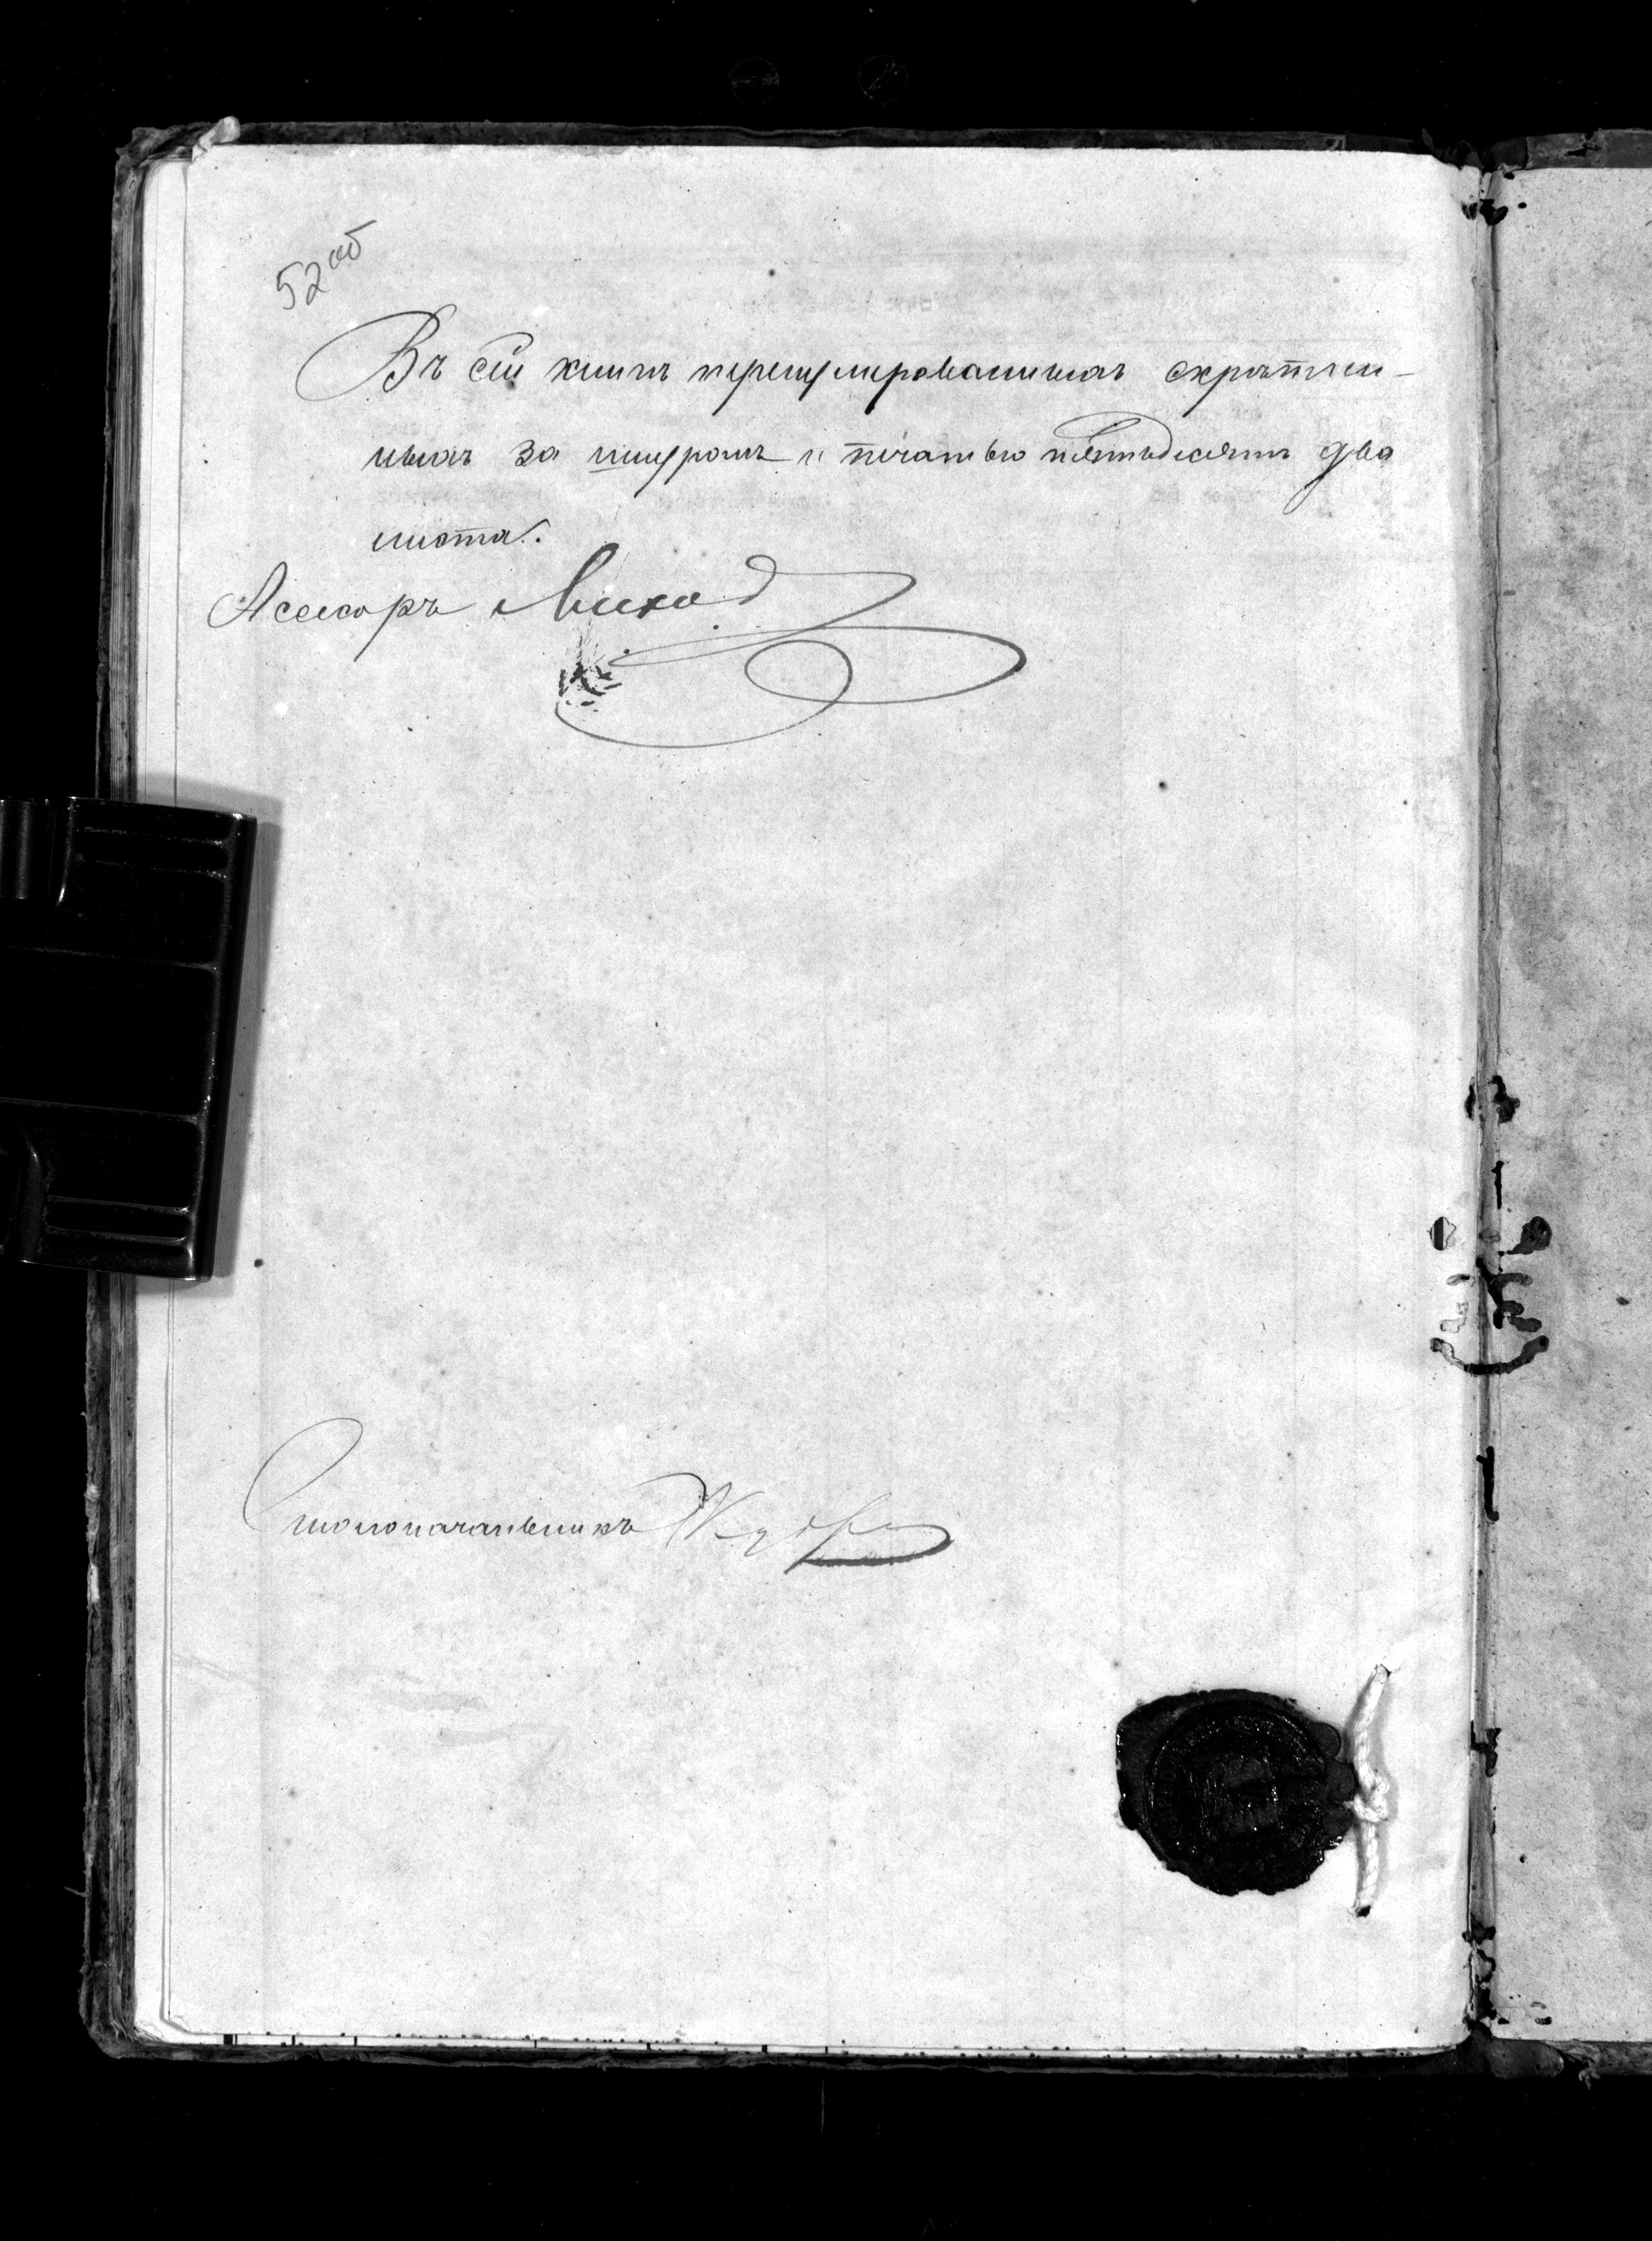 52 об
Въ сей книгѣ перенумерованныхъ скрѣплен-
ныхъ за шнуромъ и печатью пятьдесятъ два
листа.
Асессоръ
Столоначальникъ